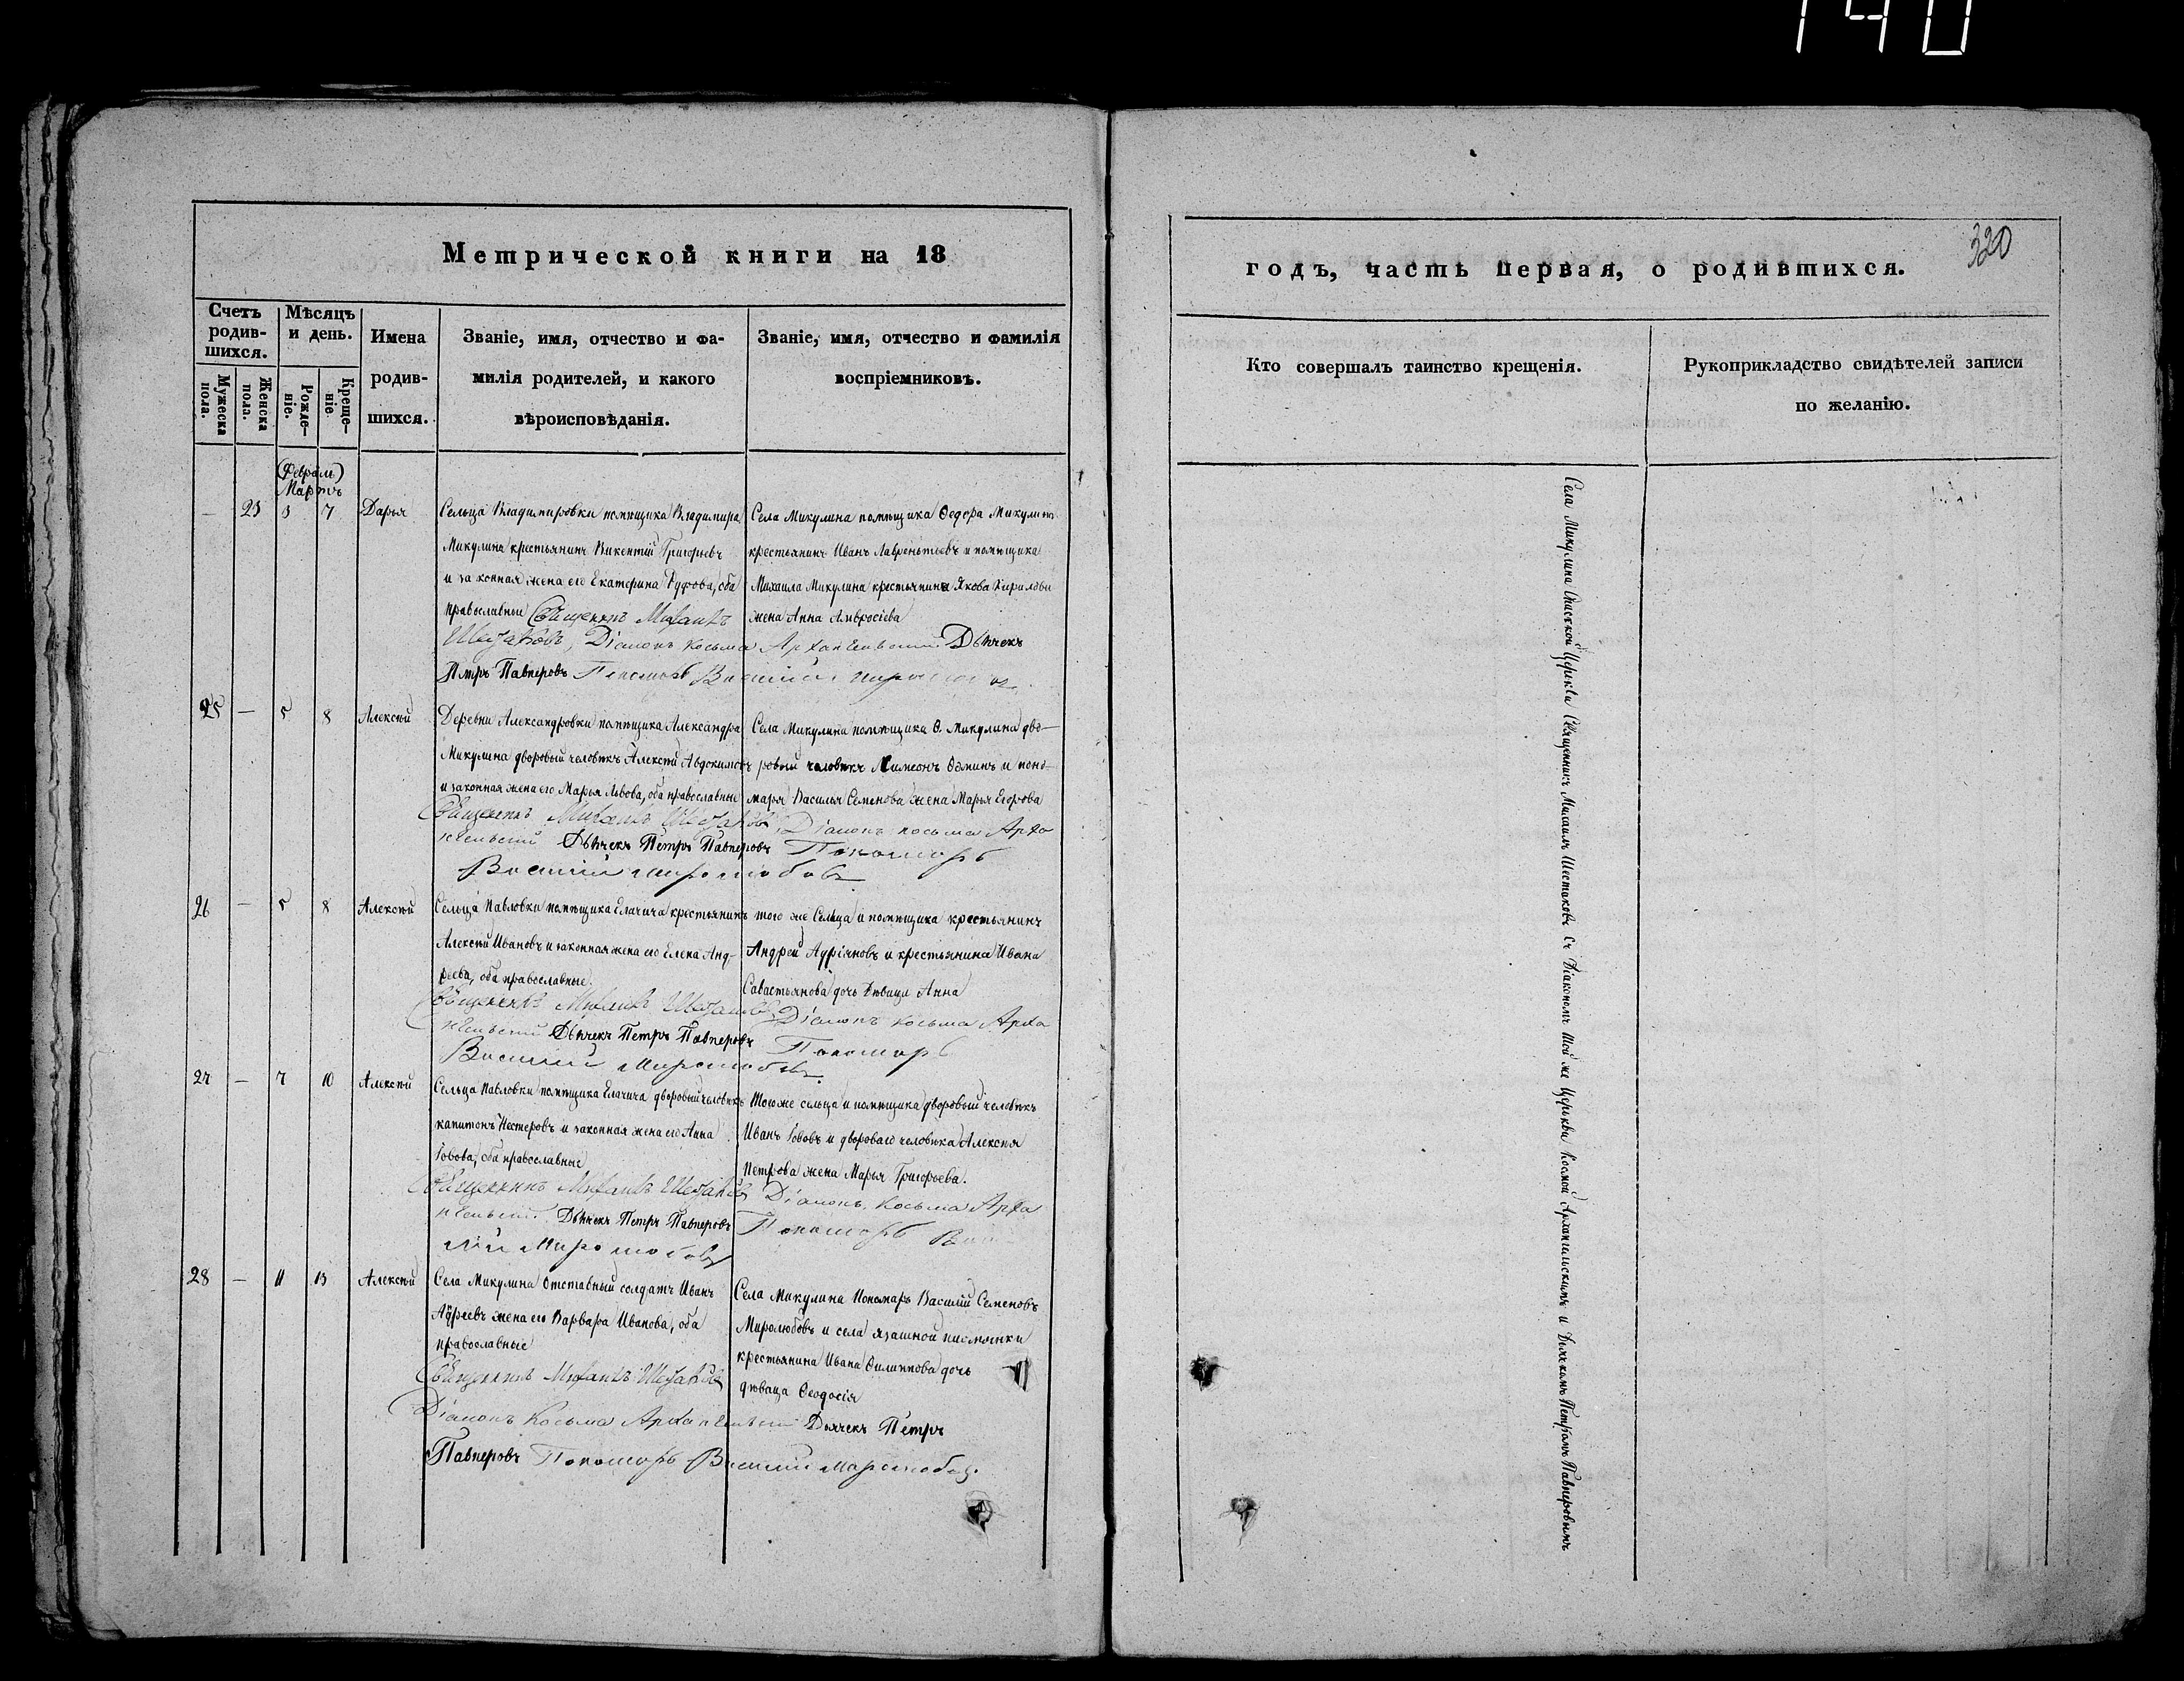 140
Метрической книги на 18
годъ, часть первая, о родившихся.
320
Счетъ родив-шихся.
Мѣсяцъ и день.
Имена родив-шихся.
Званіе, имя, отчество и фа-
милія родителей, и какого
вѣроисповѣданія.
Званіе, имя, отчество и фамилія
воспріемниковъ.
Мужеска пола.
Женска пола.
Рожде-ніе.
Креще-ніе.
Кто совершалъ таинство крещенія.
Рукоприкладство свидѣтелей записи
по желанію.
(Февраль)
Мартъ
— 23 3 7 Дарья
Сельца Владимировки помѣщика Владимира
Микулина крестьянинъ Викентій Григорьевъ
и законная жена его Екатерина, оба
православныи Священникъ Михаилъ
Шестаковъ, Діаконъ Косьма Архангельскій Дьячекъ
Петръ Павперовъ Пономарь Василій Миролюбовъ
Села Микулина помѣщика Ѳедора Микулина
крестьянинъ Иванъ Лаврентьевъ и помѣщика
Михаила Микулина крестьянина Якова Кирилова
жена Анна Амвросіева
25 — 5 8 Алексѣй
Деревни Александровки помѣщика Александра
Микулина дворовый человѣкъ Алексѣй Авдокимовъ
и законная жена его Марья Львова, оба православные
Священникъ Михаилъ Шестаковъ, Діаконъ Косьма Арха
нгельскій Дьячекъ Петръ Павперовъ Пономарь
Василій Миролюбовъ
Села Микулина помѣщика Ѳ. Микулина дво-
ровый человѣкъ и поно-
маря Василья Семенова жена Марья Егорова
26 — 5 8 Алексѣй
Сельца Павловки помѣщика Елачича крестьянинъ
Алексѣй Ивановъ и законная жена его Елена Анд-
реева, оба православные.
Священникъ Михаилъ Шестаковъ Діаконъ Косьма Арха
нгельскій Дьячекъ Петръ Павперовъ Пономарь
Василій Миролюбовъ.
того же Сельца и помѣщика крестьянинъ
Андрей Адріановъ и крестьянина Ивана
Савастьянова дочь дѣвица Анна
27 — 7 10 Алексѣй
Сельца Павловки помѣщика Елачича дворовый человѣкъ
капитонъ Нестеровъ и законная жена его Анна
Іовова, оба православные
Священникъ Михаилъ Шестаковъ Діаконъ Косьма Арха
нгельскій Дьячекъ Петръ Павперовъ Пономарь Васи
лій Миролюбовъ
Тогоже сельца и помѣщика дворовый человѣкъ
Иванъ Іововъ и двороваго человѣка Алексѣя
Петрова жена Марья Григорьева.
28 — 11 13 Алексѣй
Села Микулина отставный солдатъ Иванъ
жена его Варвара Иванова, оба
православные
Священникъ Михаилъ Шестаковъ
Діаконъ Косьма Архангельскій Дьячекъ Петръ
Павперовъ Пономарь Василій Миролюбовъ.
Села Микулина Пономарь Василій Семеновъ
Миролюбовъ и села язашной письмянки
крестьянина Ивана Филиппова дочь
дѣвица Ѳеодосія
Села Микулина Спасской Церкви Священникъ Михаилъ Шестаковъ съ Діакономъ той же Церкви Космой Архангельскимъ и Дьячкомъ Петромъ Павперовымъ